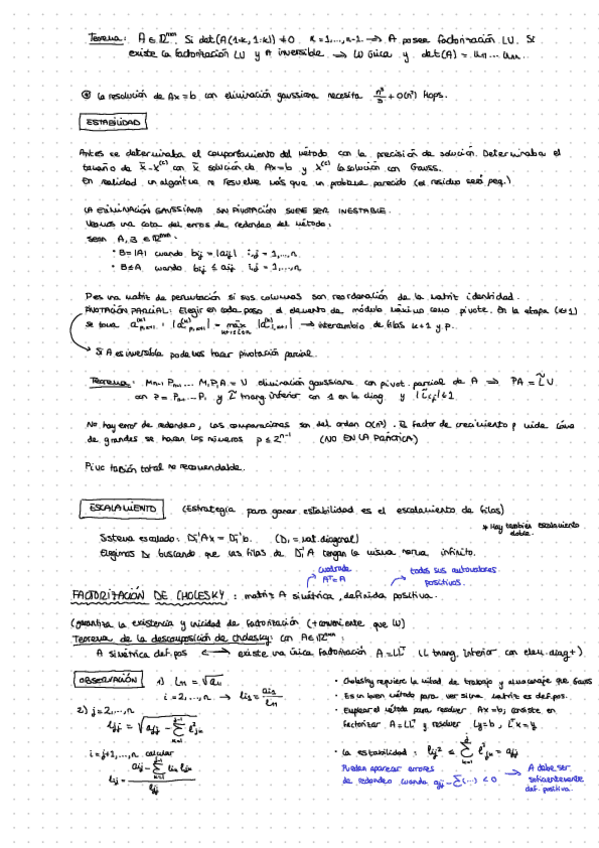 Teorema: A ∈ ℝⁿˣⁿ. Si det(A(1:k, 1:k)) ≠ 0 k = 1,...,n-1 → A posee factorización LU. Si
existe la factorización LU y A inversible → LU única y det(A) = u₁₁ ... uₙₙ.
⊛ La resolución de Ax = b con eliminación gaussiana necesita n³/3 + O(n²) flops.
ESTABILIDAD
Antes se determinaba el comportamiento del método con la precisión de solución. Determinaba el
tamaño de x̃ - x⁽ᶜ⁾ con x̃ solución de Ax = b y x⁽ᶜ⁾ la solución con Gauss.
En realidad un algoritmo no resuelve más que un problema parecido (el residuo será peq.)
LA ELIMINACIÓN GAUSSIANA SIN PIVOTACIÓN SUELE SER INESTABLE.
Veamos una cota del error de redondeo del método:
Sean A, B ∈ ℝⁿˣⁿ:
· B = |A| cuando bij = |aij| i,j = 1,...,n.
· B ≤ A cuando bij ≤ aij i,j = 1,...,n
P es una matriz de permutación si sus columnas son reordenación de la matriz identidad.
PIVOTACIÓN PARCIAL: Elegir en cada paso el elemento de módulo máximo como pivote. En la etapa (k+1)
se toma → intercambio de filas k+1 y p.
→ Si A es inversible podemos hacer pivotación parcial.
Teorema: Mₙ₋₁ Pₙ₋₁ ... M₁P₁A = U eliminación gaussiana con pivot. parcial de A ⇒ PA = L̃U.
con P = Pₙ₋₁ ... P₁ y L̃ triang. inferior con 1 en la diag. y |L̃ij| ≤ 1
No hay error de redondeo, las comparaciones son del orden O(n²). El factor de crecimiento ρ mide cómo
de grandes se hacen los números ρ ≤ 2ⁿ⁻¹ (NO EN LA PRÁCTICA)
Pivotación total no recomendable.
ESCALAMIENTO (Estrategia para ganar estabilidad es el escalamiento de filas)
* Hay también escalamiento
doble.
Sistema escalado: D₁⁻¹Ax = D₁⁻¹b. (D₁ = mat. diagonal)
Elegimos D₁ buscando que las filas de D₁⁻¹A tengan la misma norma infinito.
cuadrada
Aᵀ = A
todos sus autovalores
positivos.
FACTORIZACIÓN DE CHOLESKY: matriz A simétrica, definida positiva.
(Garantiza la existencia y unicidad de factorización (+ conveniente que LU)
Teorema de la descomposición de Cholesky: con A ∈ ℝⁿˣⁿ:
A simétrica def. pos ↔ existe una única factorización A = LLᵀ (L triang. Inferior con elem. diag +)
OBSERVACIÓN 1) l₁₁ = √a₁₁
i = 2,...,n → li1 = ai1 / l₁₁
2) j = 2,...,n
i = j+1,...,n calcular
· Cholesky requiere la mitad de trabajo y almacenaje que Gauss
· Es un buen método para ver si una matriz es def. pos.
· Emplear el método para resolver Ax = b; consiste en
factorizar A = LLᵀ y resolver Ly = b, Lᵀx = y.
· La estabilidad:
Pueden aparecer errores
de redondeo cuando ajj - Σ(...) < 0 → A debe ser
suficientemente
def. positiva.